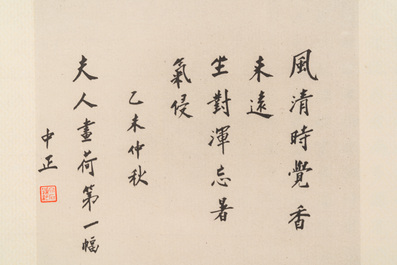 風清時覺香
来遠
坐對渾忘暑
氣侵
乙未仲秋
夫人畫荷第一幅
中正